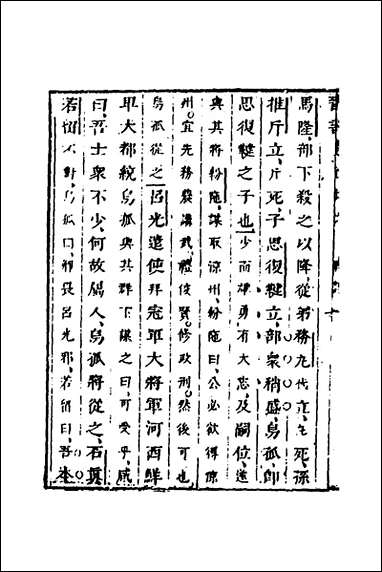 馬隆部下殺之以降從弟務九代立死孫
推斤立斤死子思復鞬立部衆稍盛烏孤即
思復鞬之子也少而雄勇有大志及嗣位遂
與其將紛陁謀取涼州紛陁曰公必欲得涼
州宜先務農講武禮俊賢修政刑然後可也
烏孤從之呂光遣使拜冠軍大將軍河西鮮
卑大都統烏孤與其群下謀之曰可受乎咸
曰吾士衆不少何故屬人烏孤將從之石真
若留不對烏孤曰卿畏呂光邪若留曰吾本